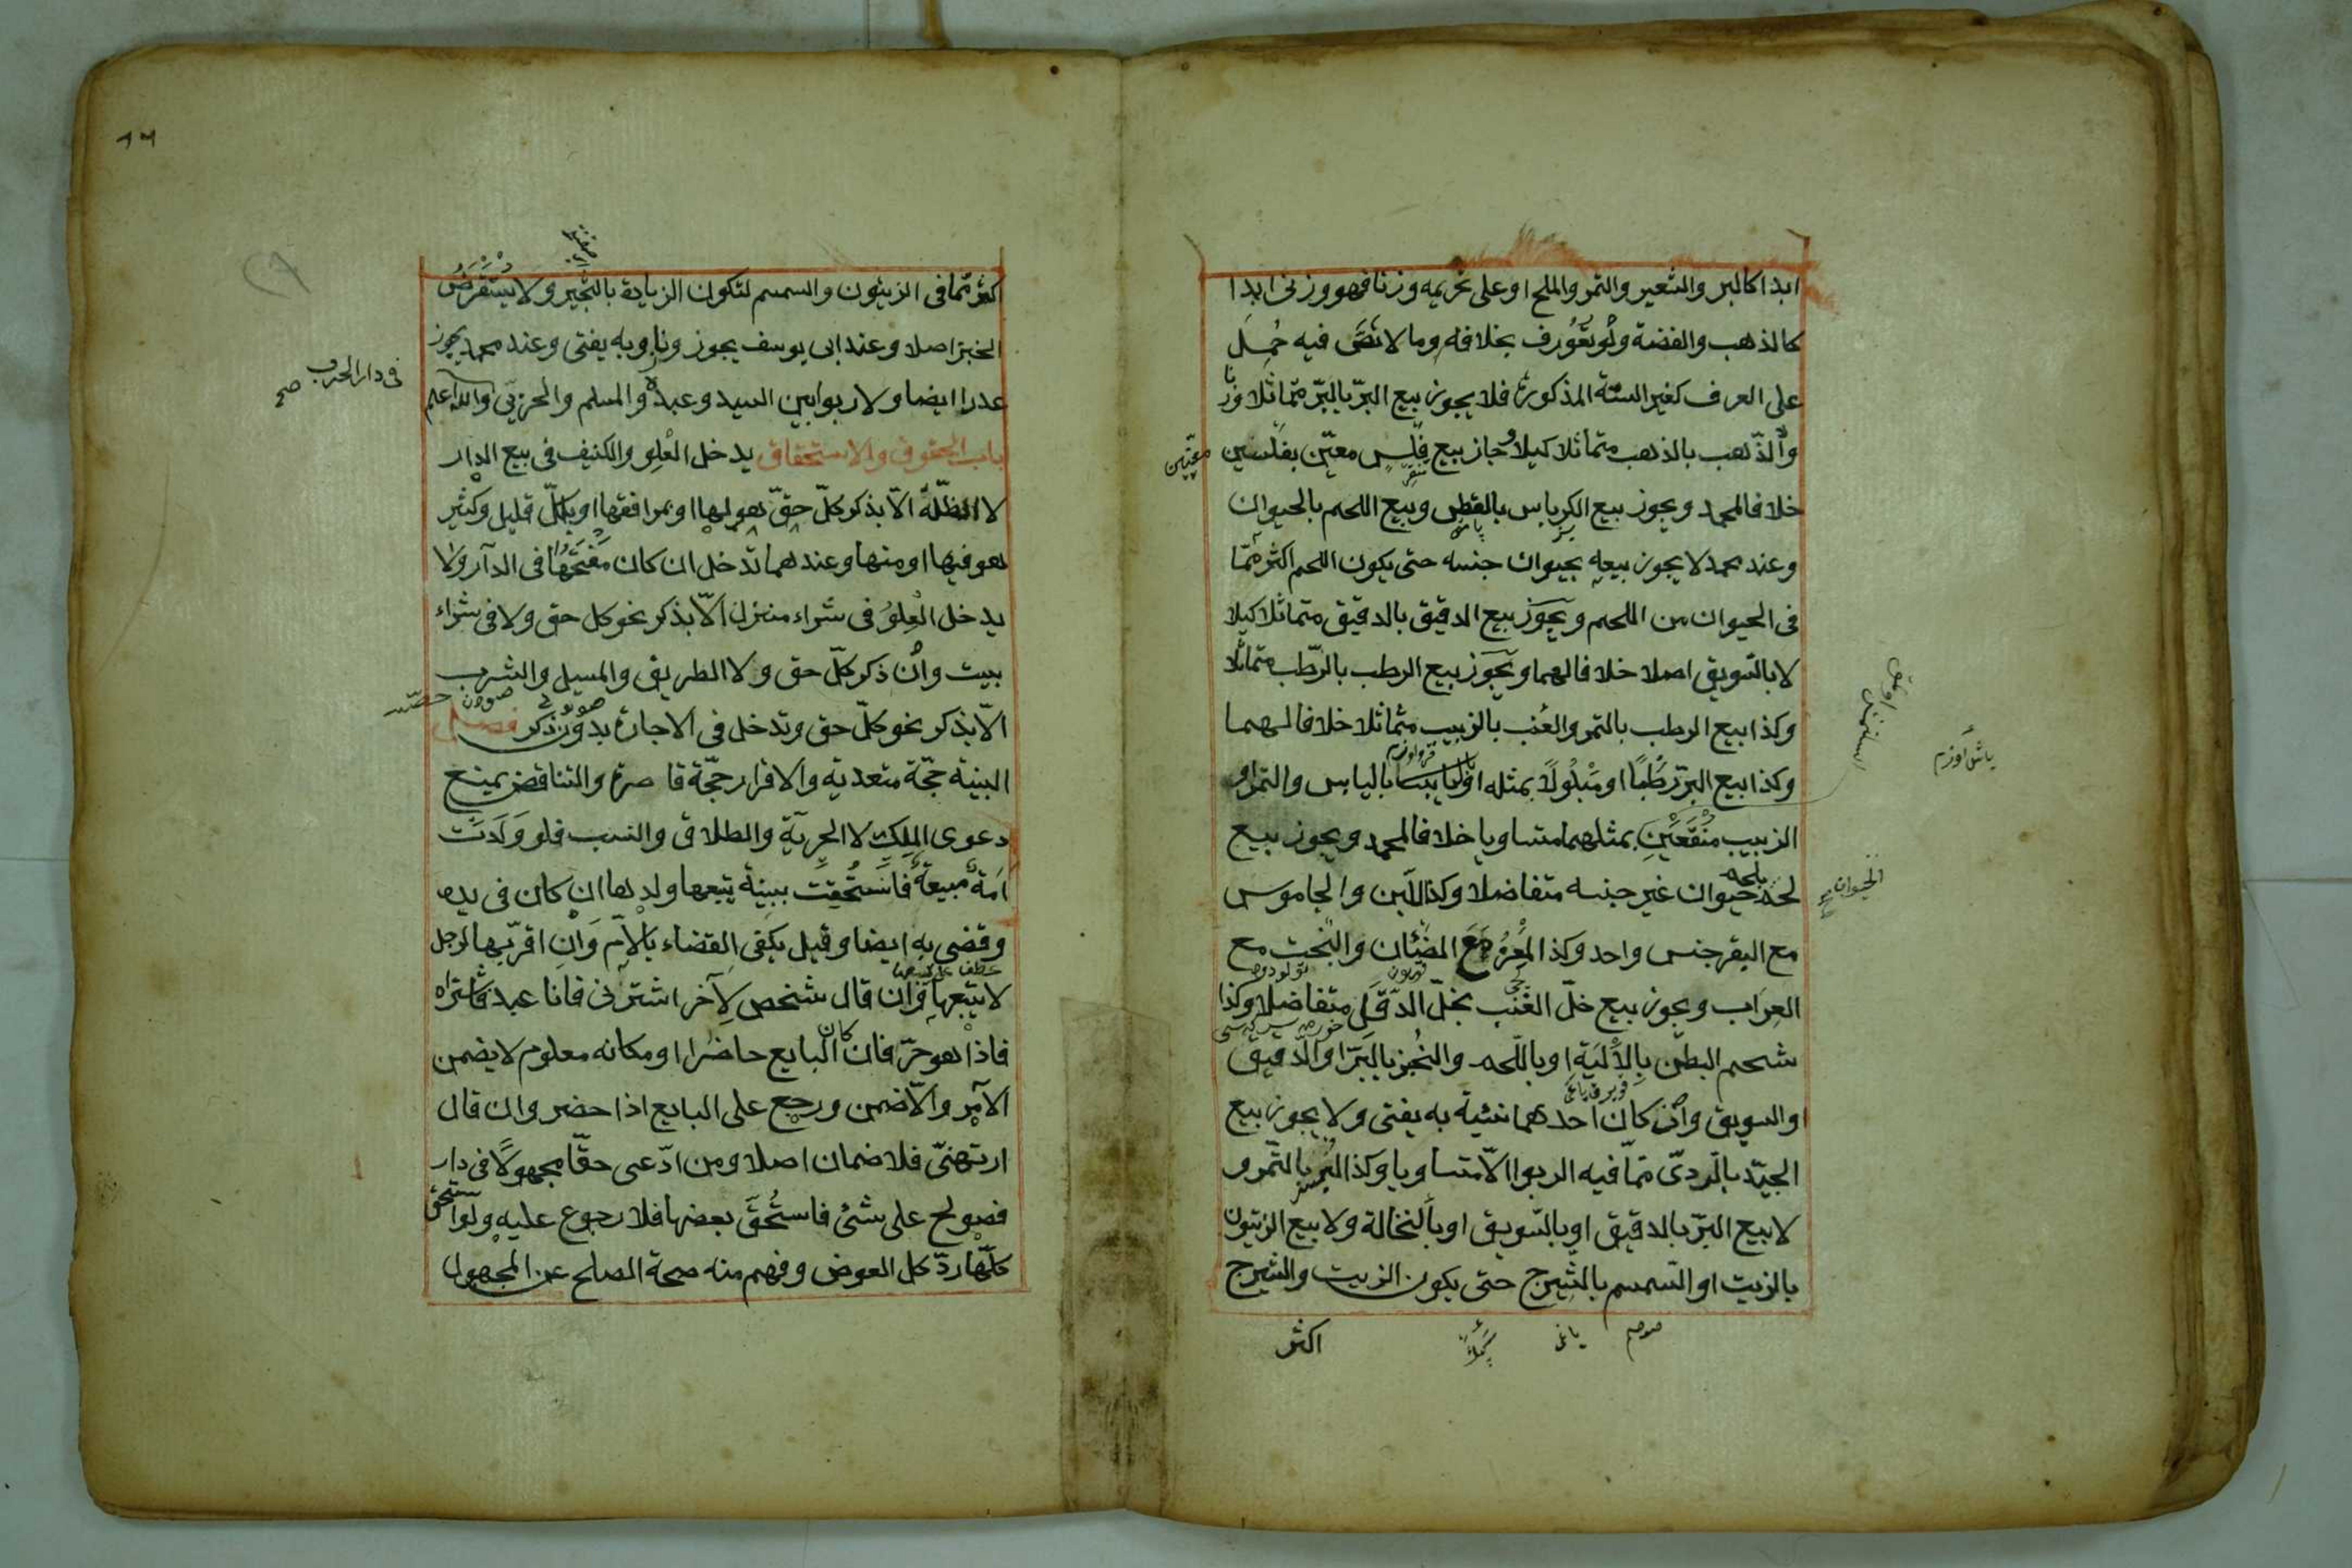 ابدا كالبر والشعير والتمر والملح او على تحريمه وزنا فهو وزنى ابدا
كالذهب والفضة ولو تعورف بخلافه وما لا نص فيه حمل
على العرف كغير الستة المذكورة فلا يجوز بيع البرّ بالبرّ متماثلا وزنا
والذّهب بالذهب متماثلا كيلا وجاز بيع فلس معيّن بفلسين
معيّنين
خلافا لمحمد ويجوز بيع الكرباس بالقطن وبيع اللحم بالحيوان
وعند محمد لا يجوز بيعه بحيوان جنسه حتى يكون اللحم اكثر ممّا
فى الحيوان من اللحم ويجوز بيع الدقيق بالدقيق متماثلا كيلا
لا بالسّويق اصلا خلافا لهما ويجوز بيع الرطب بالرّطب متماثلا
وكذا بيع الرطب بالتمر والعنب بالزبيب متماثلا خلافا لهما
وكذا بيع البرّ رَطْبًا او مَبْلُولًا بمثله او باليابس والتمر او
الزبيب منقعَيْنِ بمثلهما متساويا خلافا لمحمد ويجوز بيع
لحم حيوان بلحم غير جنسه متفاضلا وكذا اللّبن والجاموس
الحيوان صح
مع البقر جنس واحد وكذا المعز مع الضئان والبخت مع
العِرَاب ويجوز بيع خلّ العنب بخلّ الدّقَل متفاضلا وكذا
شحم البطن بالألْيَة او باللّحم والخبز بالبرّ او الدّقيق
او السويق وان كان احدهما نسئية به يفتى ولا يجوز بيع
الجيّد بالردىّ ممّا فيه الربوا الّا متساويا وكذا البُسر بالتّمر و
لا بيع البرّ بالدقيق او بالسّويق او بالنخالة ولا بيع الزيتون
بالزيت او السّمسم بالشّيرج حتى يكون الزيت والشيرج
اكثر
اكثر ممّا فى الزيتون والسمسم لتكون الزيادة بالثّجير ولا يُسْتَقْرَضُ
الخبز اصلا وعند ابى يوسف يجوز وزنا وبه يفتى وعند محمد يجوز
عددا ايضا ولا ربوا بين السيد وعبده والمسلم والحربىّ والله اعلم
فى دار الحرب صح
باب الحقوق والاستحقاق يدخل العُلو والكنيف فى بيع الدار
لا الظلّة الّا بذكر كلّ حقّ هو لها او بمرافقها او بكلّ قليل وكثير
هو فيها او منها وعندهما تدخل ان كان مَفْتَحُهَا فى الدار ولا
يدخل العلو فى شراء منزل الّا بذكر نحو كل حق ولا فى شراء
بيت وان ذكر كلّ حق ولا الطريق والمسيل والشرب
الّا بذكر نحو كلّ حق وتدخل فى الاجارة بدون ذكر فصل
البينة حجّة متعدية والاقرار حجّة قاصرة والتناقض يمنع
دعوى الملك لا الحريّة والطلاق والنسب فلو وَلَدَتْ
اَمَة مبيعة فاستُحِقت ببينة يتبعها ولدها ان كان فى يده
وقضى به ايضا وقيل يكفى القضاء بالامّ وان اقرّ بها لرجل
لا يتبعها وان قال شخص لآخر اشترنى فانا عبد فاشتراه
فاذا هو حرّ فان كان البايع حاضرا او مكانه معلوم لا يضمن
الآمر والّا ضمن ورجع على البايع اذا حضر وان قال
ارتهنّى فلا ضمان اصلا ومن ادّعى حقّا مجهولًا فى دار
فصولح على شئ فاستُحقّ بعضها فلا رجوع عليه ولو استحق
كلّها ردّ كل العوض وفهم منه صحة الصلح عن المجهول